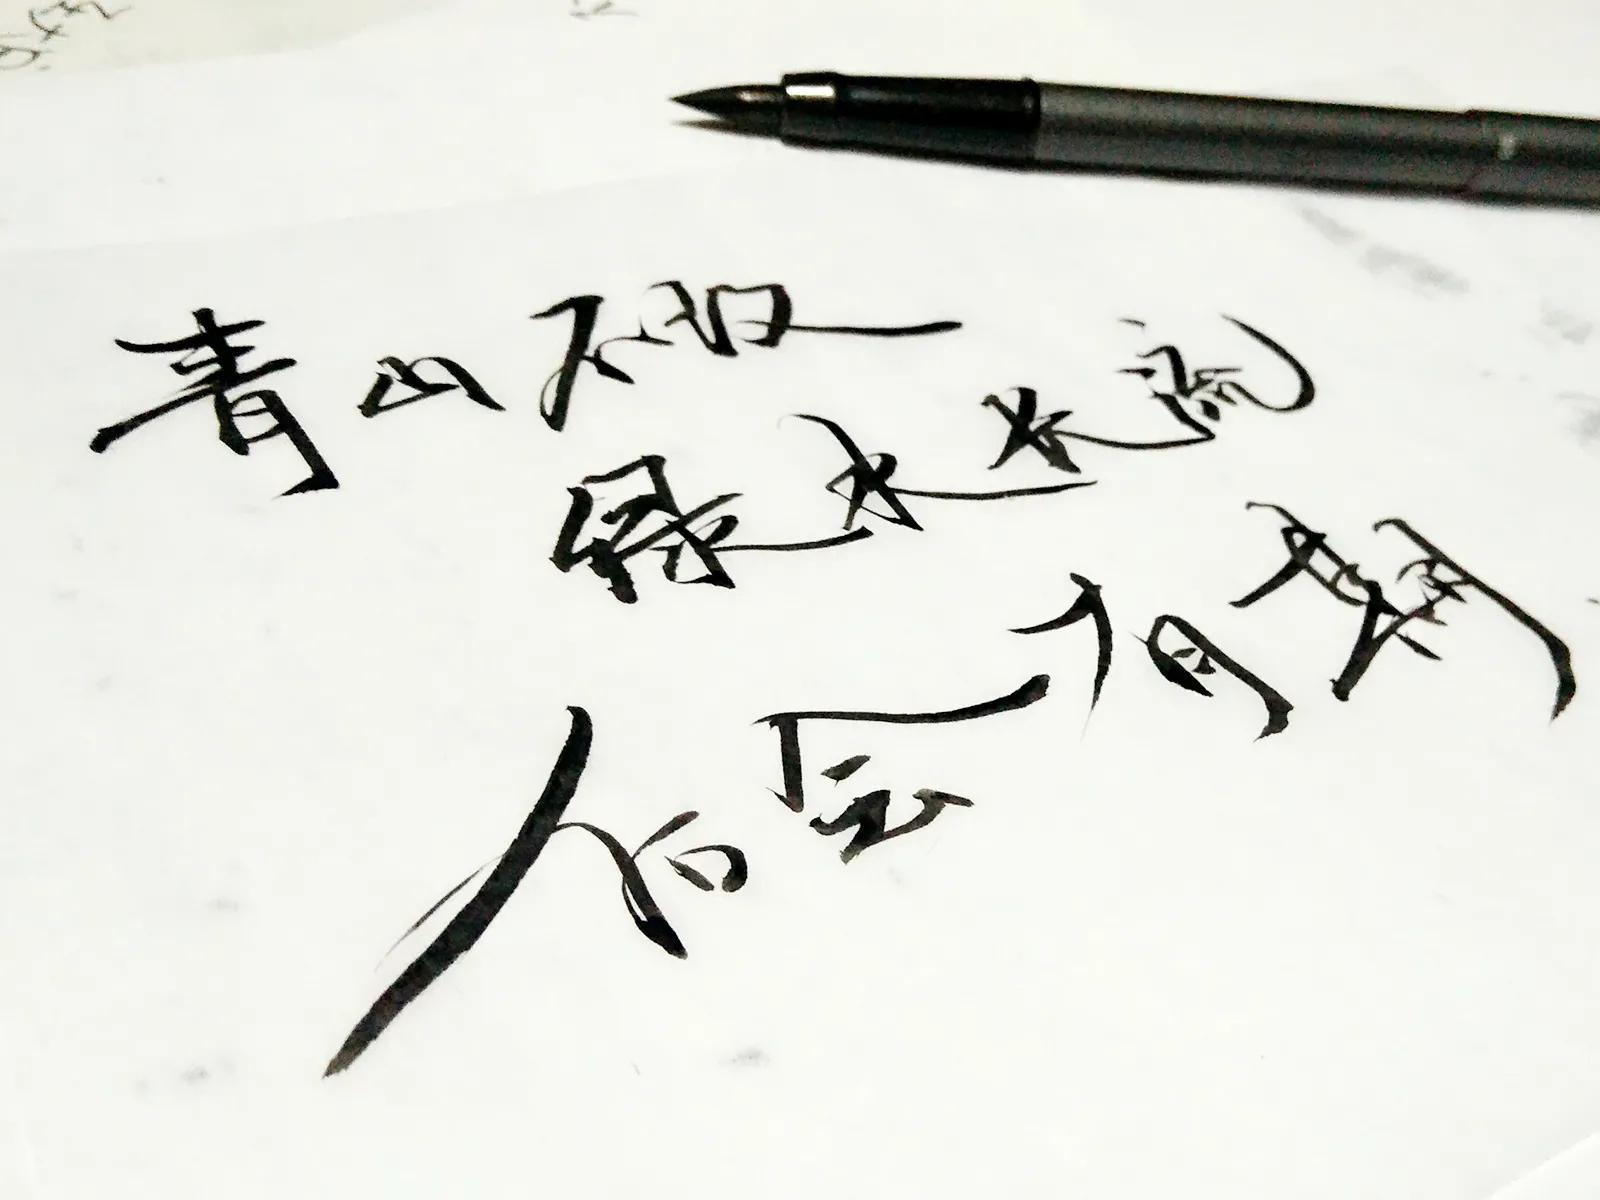 青山不改
绿水长流
后会有期